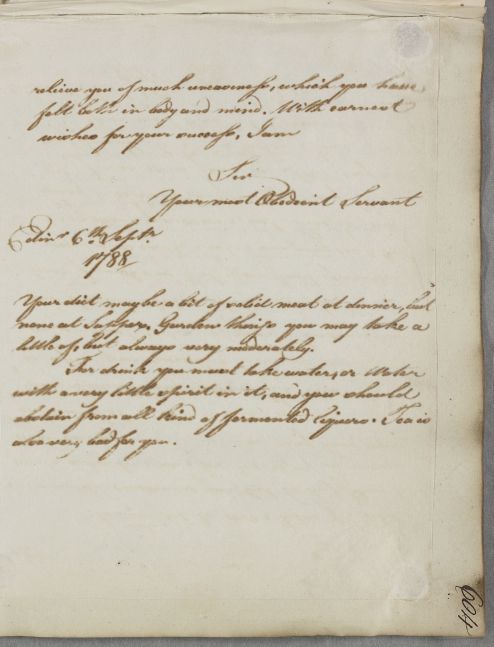 relieve you of much uneasiness, which you have
felt both in body and mind. With earnest
wishes for your success, I am
Sir
Your most Obedient Servant
Edinr 6th Septr.
1788
Your diet may be a bit of solid meat at dinner, but
none at Supper. Garden things you may take a
little of, but always very moderately.
For drink you must take water, or Water
with a very little spirit in it, and you should
abstain from all kind of fermented liquors. Tea is
also very bad for you.